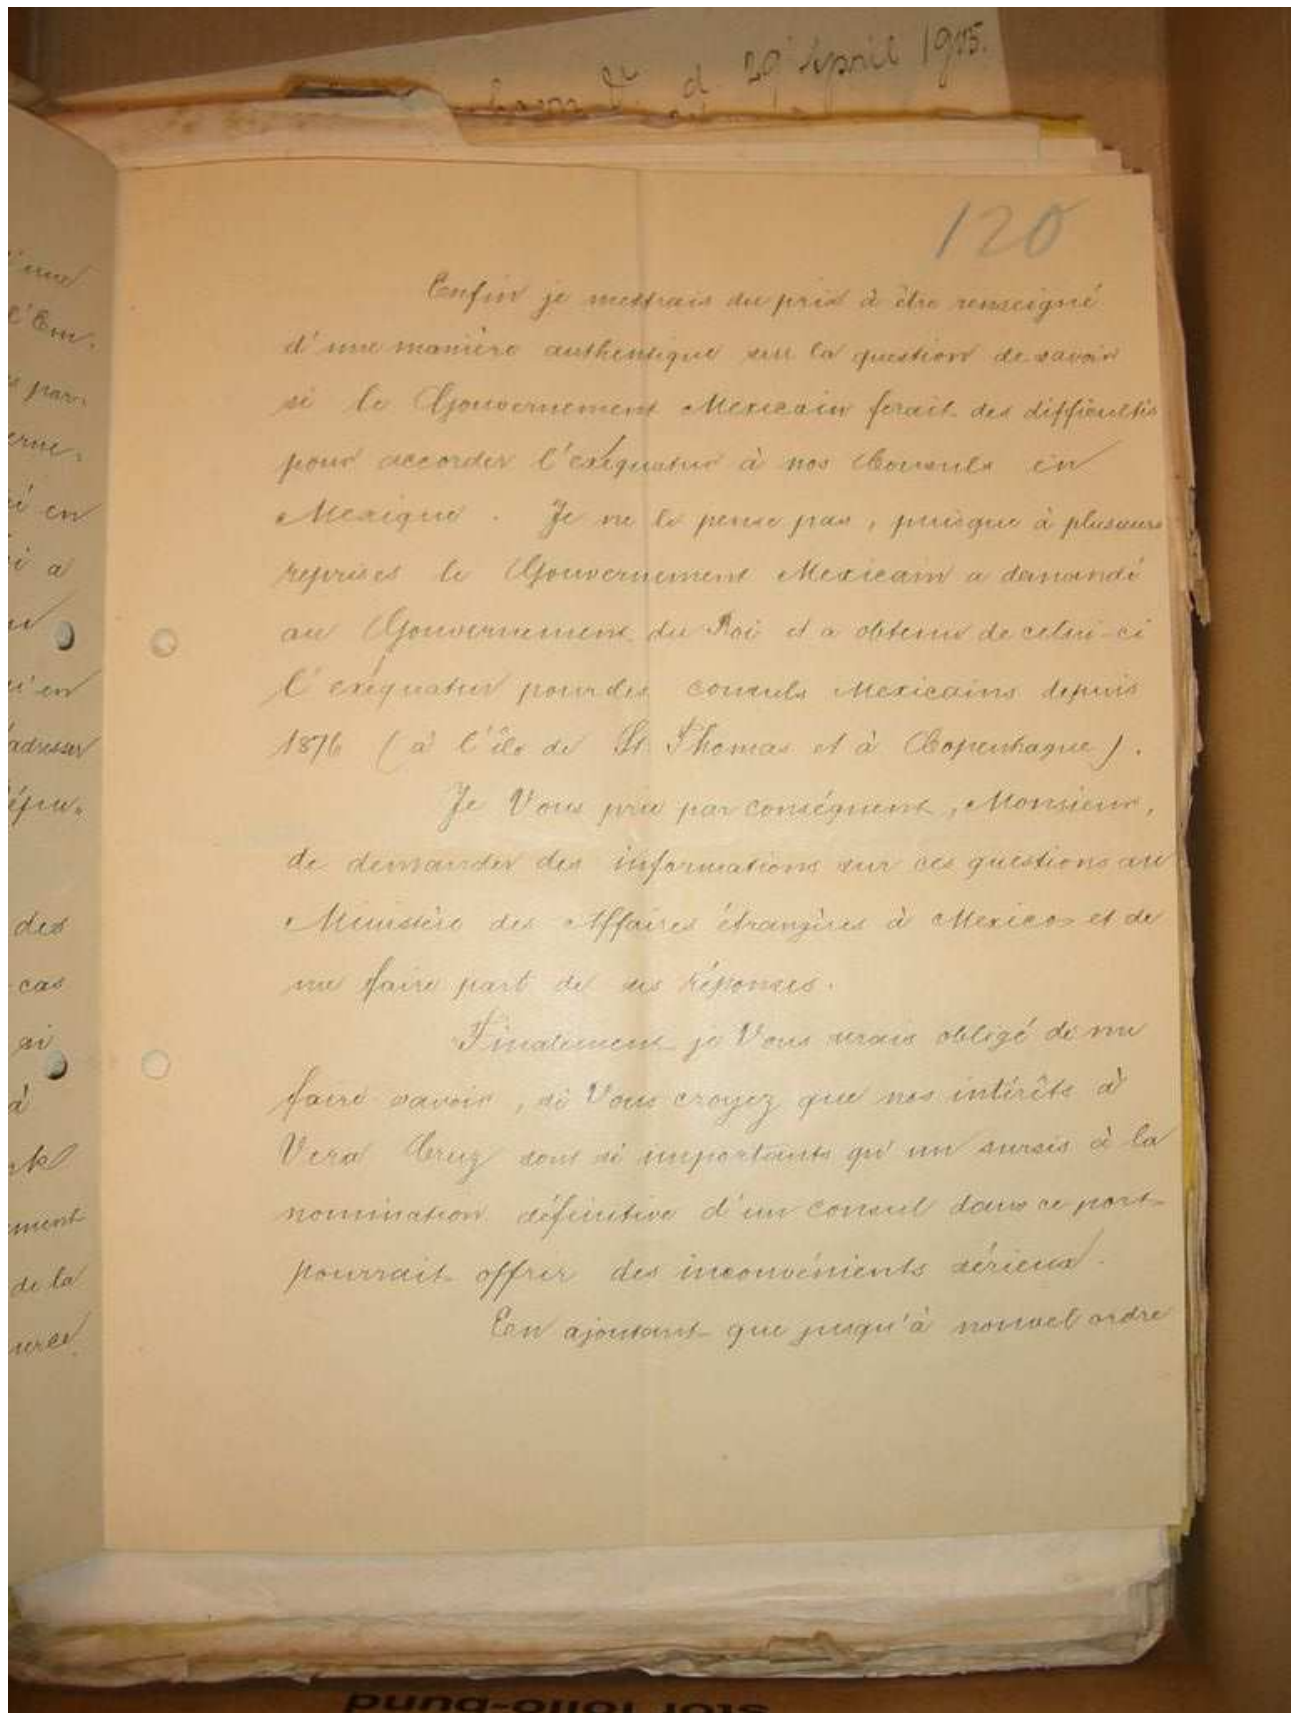 29 April 1905.
120
Enfin je mettrais du prix à être renseigné
d'une manière authentique sur la question de savoir
si le Gouvernement Mexicain ferait des difficultés
pour accorder l'exéquatur à nos Consuls en
Mexique. Je ne le pense pas, puisque à plusieurs
reprises le Gouvernement Mexicain a demandé
au Gouvernement du Roi et a obtenu de celui-ci
l'exéquatur pour des consuls Mexicains depuis
1876 (à l'île de St. Thomas et à Copenhague).
Je Vous prie par conséquent, Monsieur,
de demander des informations sur ces questions au
Ministère des Affaires étrangères à Mexico et de
me faire part de ses réponses.
Finalement je Vous serais obligé de me
faire savoir, si Vous croyez que nos intérêts à
Vera Cruz sont si importants qu'un sursis à la
nomination définitive d'un consul dans ce port
pourrait offrir des inconvénients sérieux.
En ajoutant que jusqu'à nouvel ordre
l'Em.
par
erne.
en
i a
adresser
des
cas
si
à
ment
de la